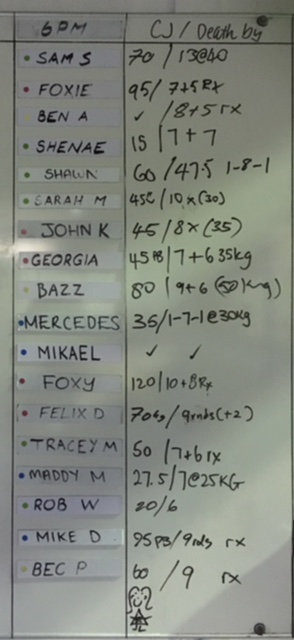 6PM CJ / Death by
SAM S 70 / 13@40
FOXIE 95 / 7+5 Rx
BEN A ✓ / 8+5 rx
SHENAE 15 / 7+7
SHAWN 60 / 47.5 1-8-1
SARAH M 45C / 10 x (30)
JOHN K 45 / 8 x (35)
GEORGIA 45PB / 7+6 35kg
BAZZ 80 / 9+6 (50kg)
MERCEDES 35 / 1-7-1@30kg
MIKAEL ✓ ✓
FOXY 120 / 10+8 Rx
FELIX D 70kg / 9rnds (+2)
TRACEY M 50 / 7+6 rx
MADDY M 27.5 / 7@25KG
ROB W 20/6
MIKE D 95PB / 9rnds rx
BEC P 60 / 9 rx